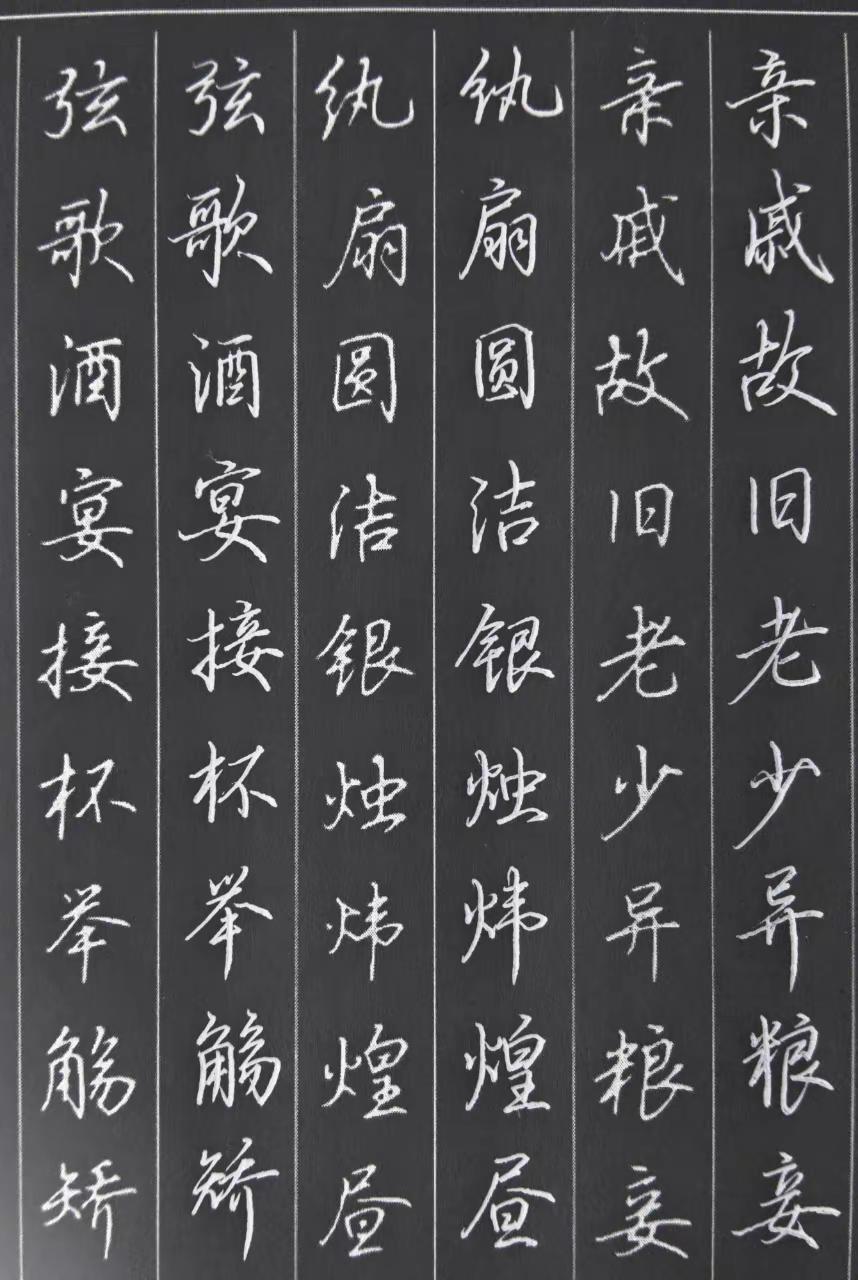 亲戚故旧老少异粮妾
亲戚故旧老少异粮妾
纨扇圆洁银烛炜煌昼
纨扇圆洁银烛炜煌昼
弦歌酒宴接杯举觞矫
弦歌酒宴接杯举觞矫